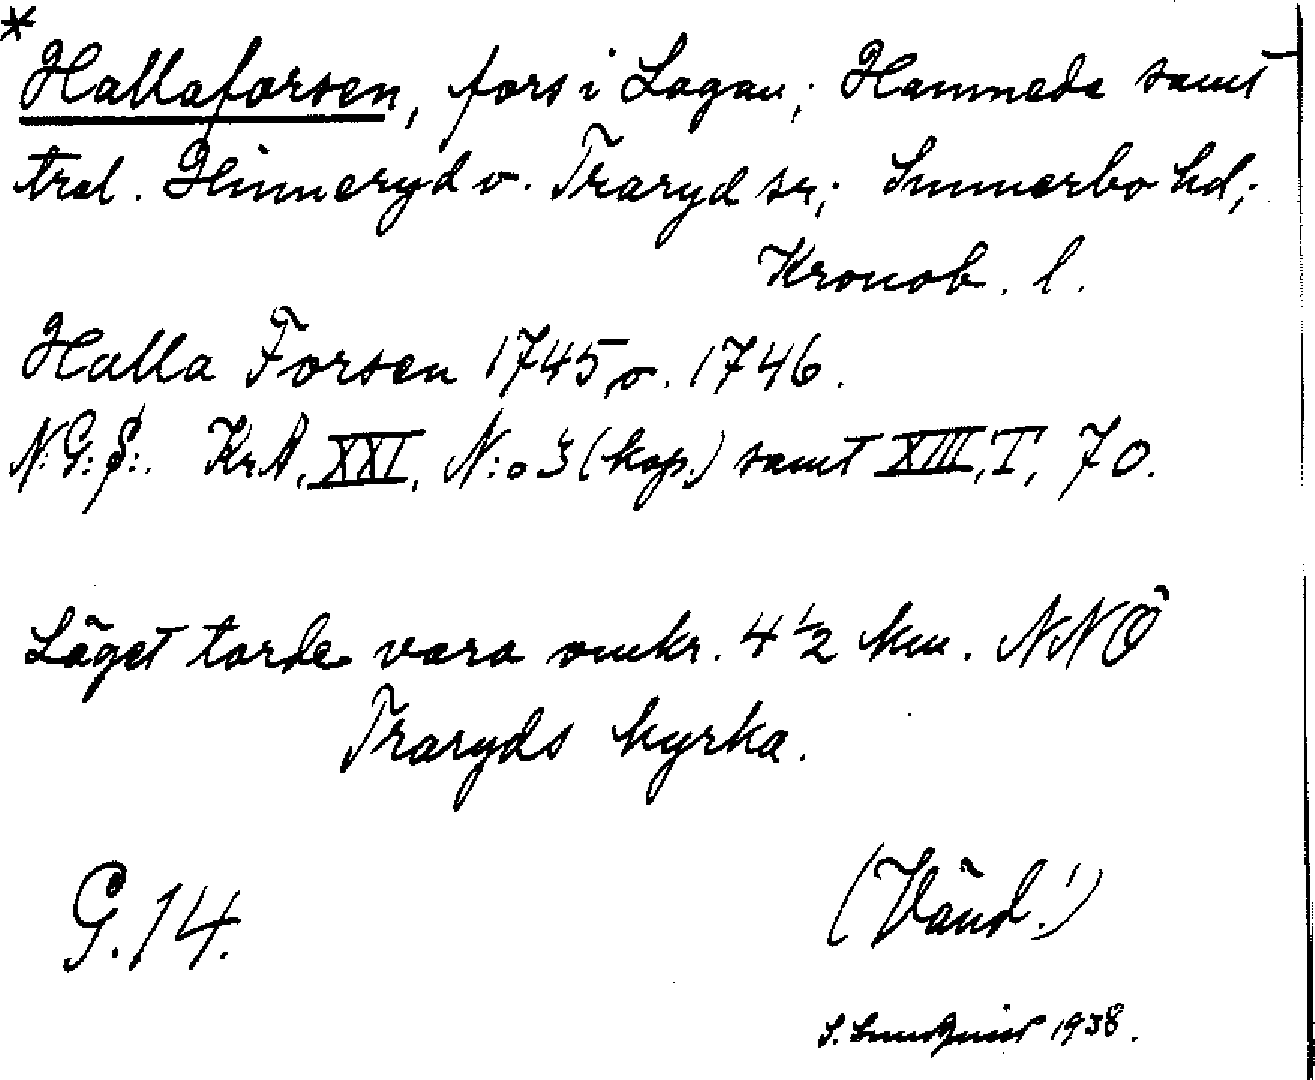 *
Hallaforsen, fors i Lagan; Hamneda samt
trol. Hinneryd o. Traryd sn; Sunnerbo hd;
Kronob. l.
Halla Forsen 1745 o. 1746.
N:G:S:. KrA, XXI, N:o 3 (kop.) samt XIII, I, 70.
Läget torde vara omkr. 4 1/2 km. NNÖ
Traryds kyrka.
G.14.
(Vänd!)
S. 1938.